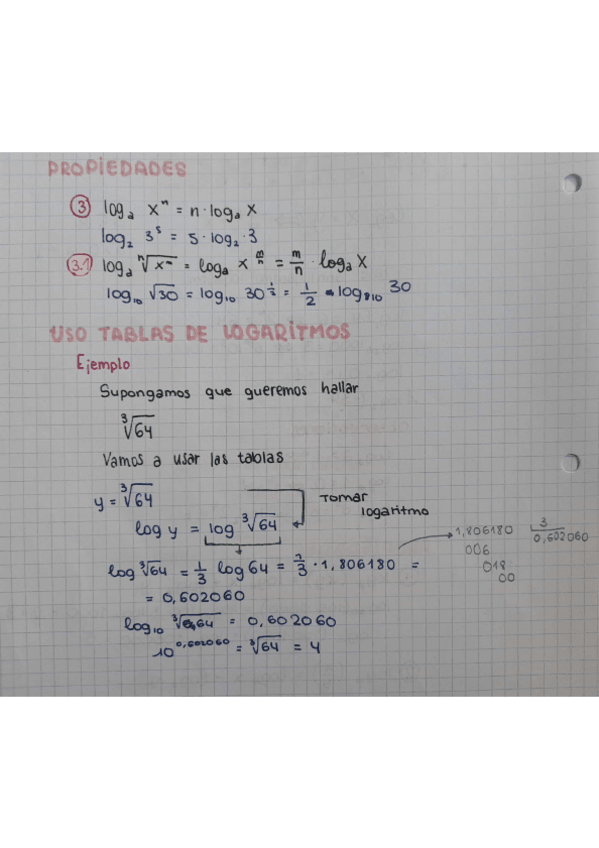 PROPIEDADES
③ logₐ xⁿ = n · logₐ x
log₂ 3⁵ = 5 · log₂ · 3
3.1 logₐ ⁿ√xᵐ = logₐ x^(m/n) = m/n · logₐ x
log₁₀ √30 = log₁₀ 30^(1/2) = 1/2 · log₁₀ 30
USO TABLAS DE LOGARITMOS
Ejemplo
Supongamos que queremos hallar
³√64
Vamos a usar las tablas
y = ³√64
Tomar
logaritmo
log y = log ³√64
log ³√64 = 1/3 log 64 = 1/3 · 1,806180 =
1,806180 3
006 0,602060
018
00
= 0,602060
log₁₀ ³√64 = 0,602060
10^0,602060 = ³√64 = 4